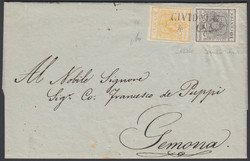 Al Nobile Signore
Sig. Co. Francesco de Puppi
Gemona